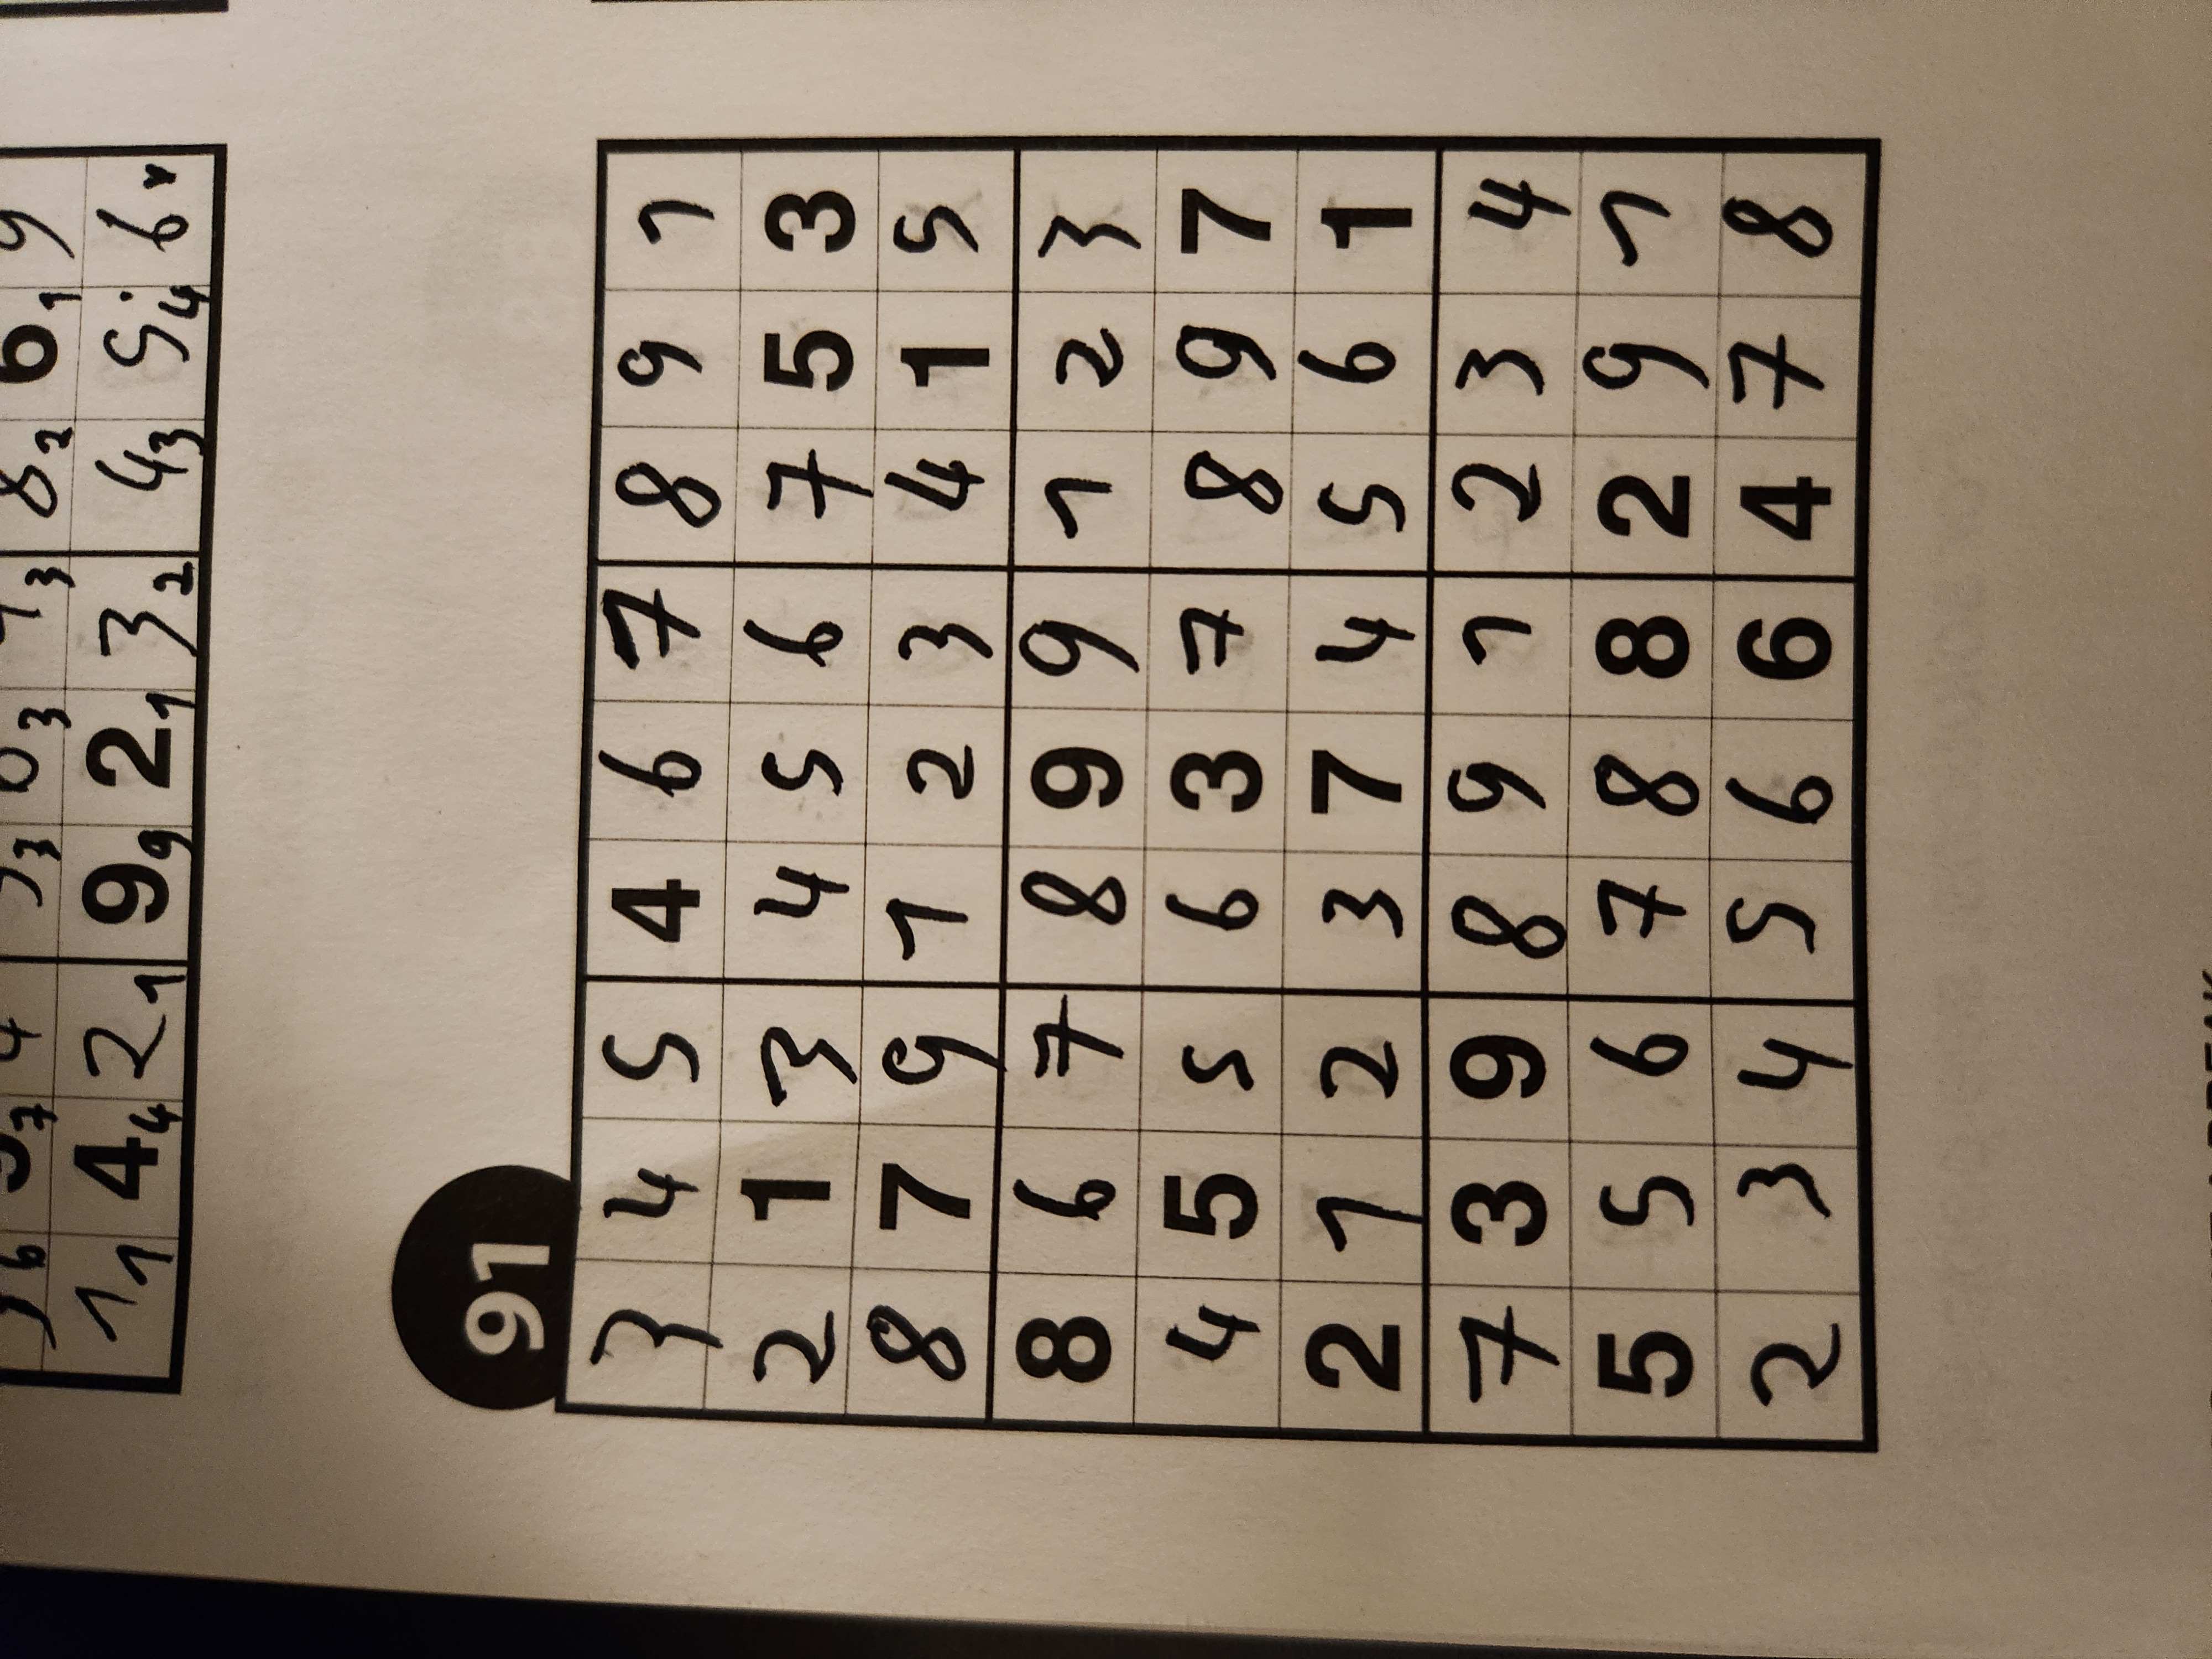 4 8₂ 6₁ 9
1₁ 4₄ 2₁ 9₉ 2₁ 3₂ 4₃ 5₄ 6
91
3 4 5 4 6 7 8 9 1
2 1 3 4 5 6 7 5 3
8 7 9 1 2 3 4 1 5
8 6 7 8 9 9 1 2 3
4 5 5 6 3 7 8 9 7
2 1 2 3 7 4 5 6 1
7 3 9 8 9 1 2 3 4
5 5 6 7 8 8 2 9 1
2 3 4 5 6 6 4 7 8